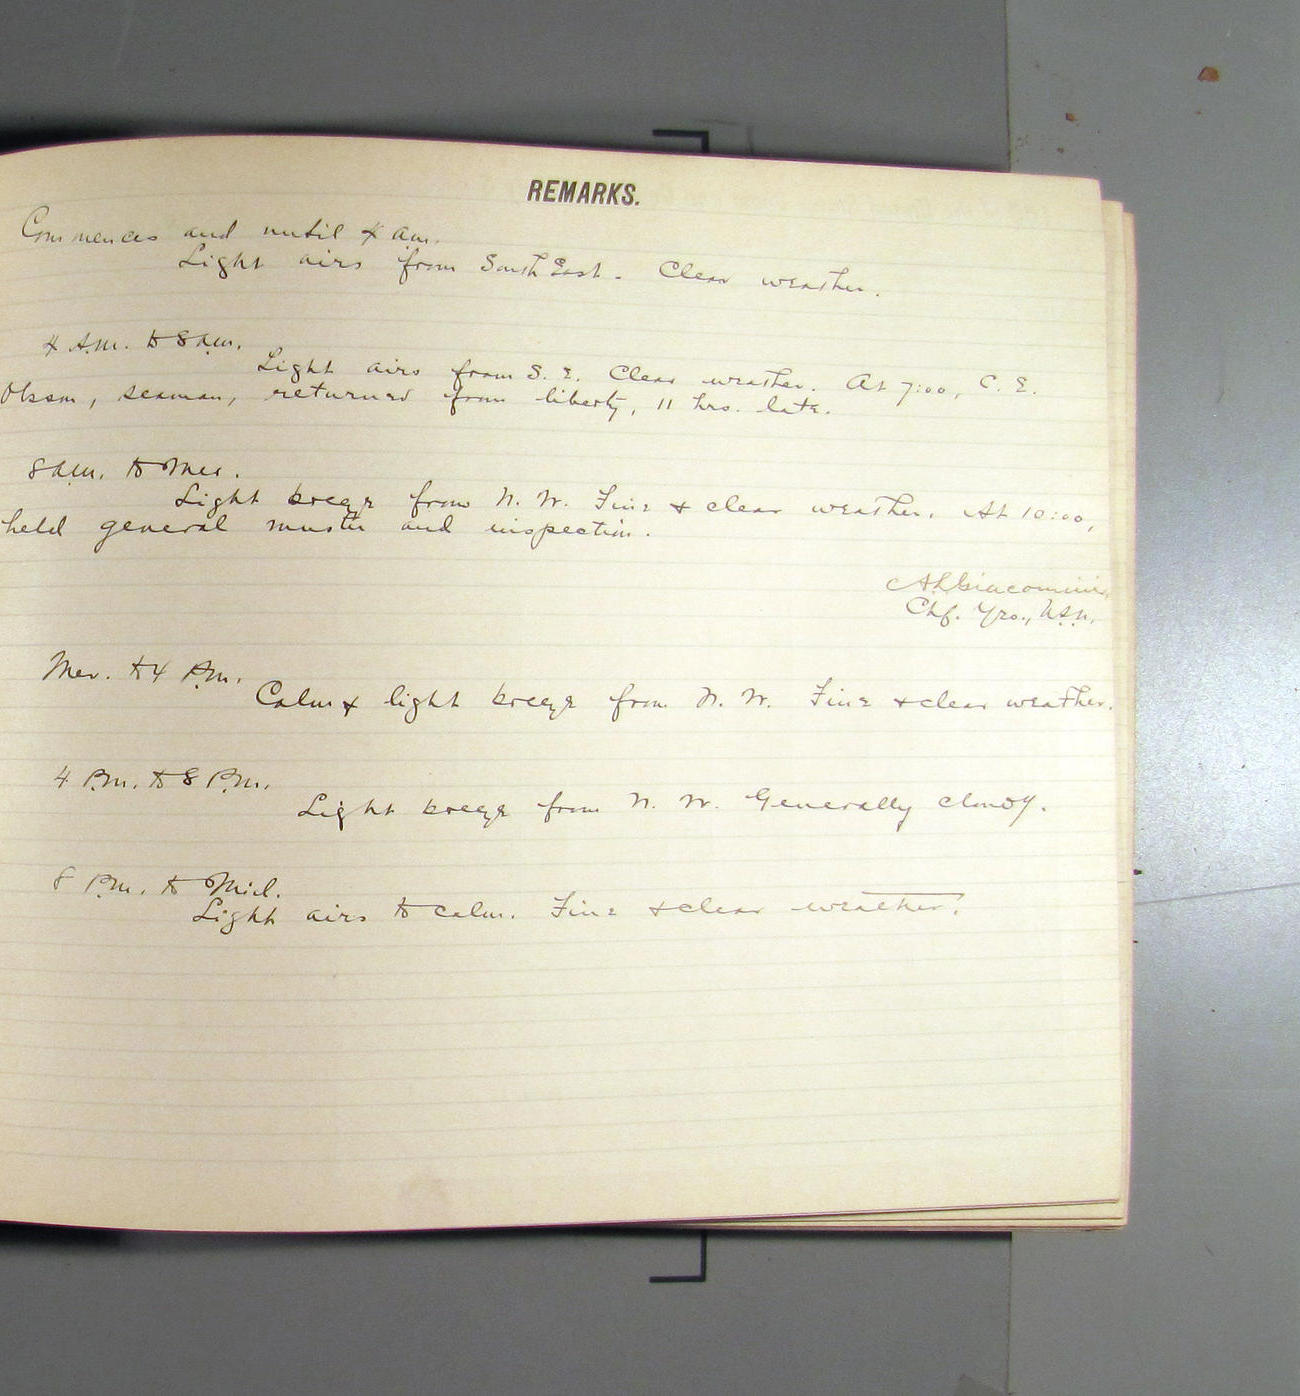 REMARKS.
Commences and until 4 a.m.
Light airs from South East. Clear weather.
4 A.M. to 8 a.m.
Light airs from S. E. Clear weather. At 7:00, C. E.
Olsson, seaman, returned from liberty, 11 hrs. late.
8 a.m. to Mer.
Light breeze from N. W. Fine & clear weather. At 10:00,
held general muster and inspection.
Giacomini
Chf. Yeo., U.S.N.
Mer. to 4 P.m.
Calm & light breeze from N. W. Fine & clear weather.
4 P.m. to 8 P.m.
Light breeze from N. W. Generally cloudy.
8 P.m. to Mid.
Light airs to calm. Fine & clear weather.